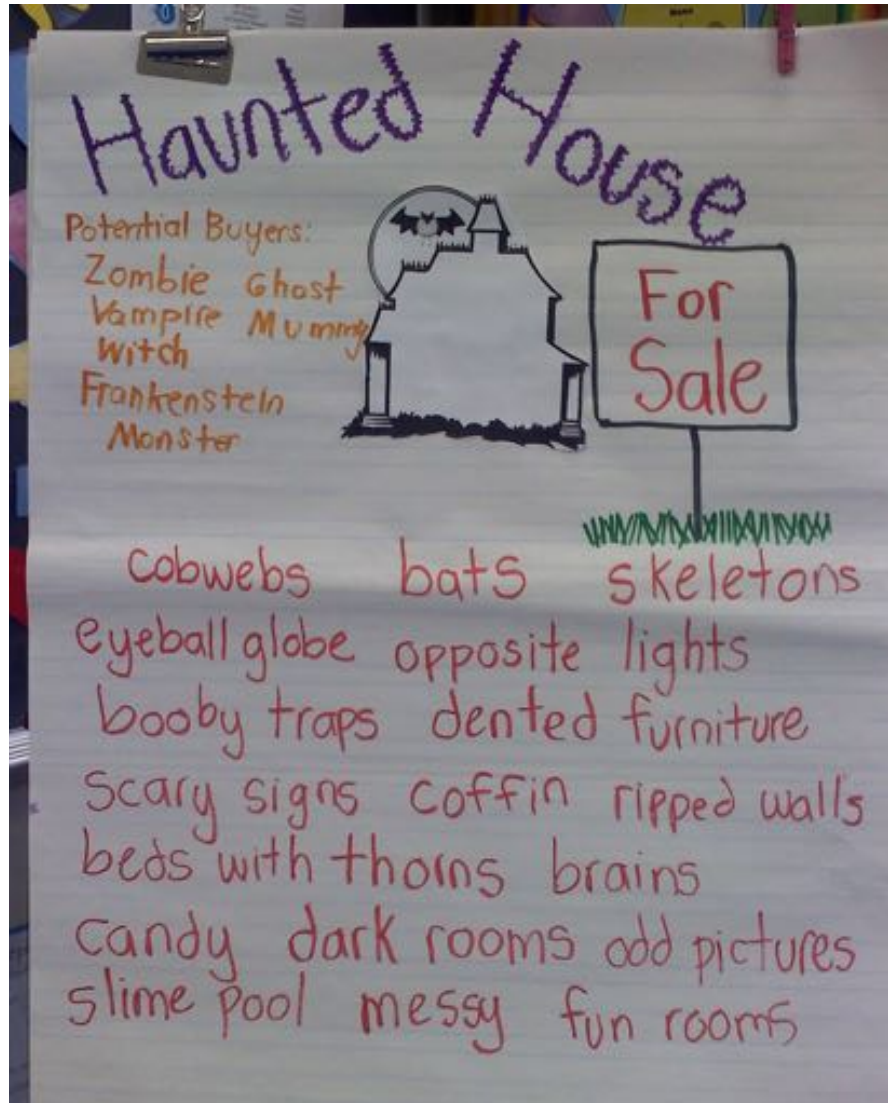 Haunted House
Potential Buyers:
Zombie Ghost
Vampire Mummy
Witch
Frankenstein
Monster
For
Sale
cobwebs bats skeletons
eyeball globe opposite lights
booby traps dented furniture
scary signs coffin ripped walls
beds with thorns brains
candy dark rooms odd pictures
slime pool messy fun rooms